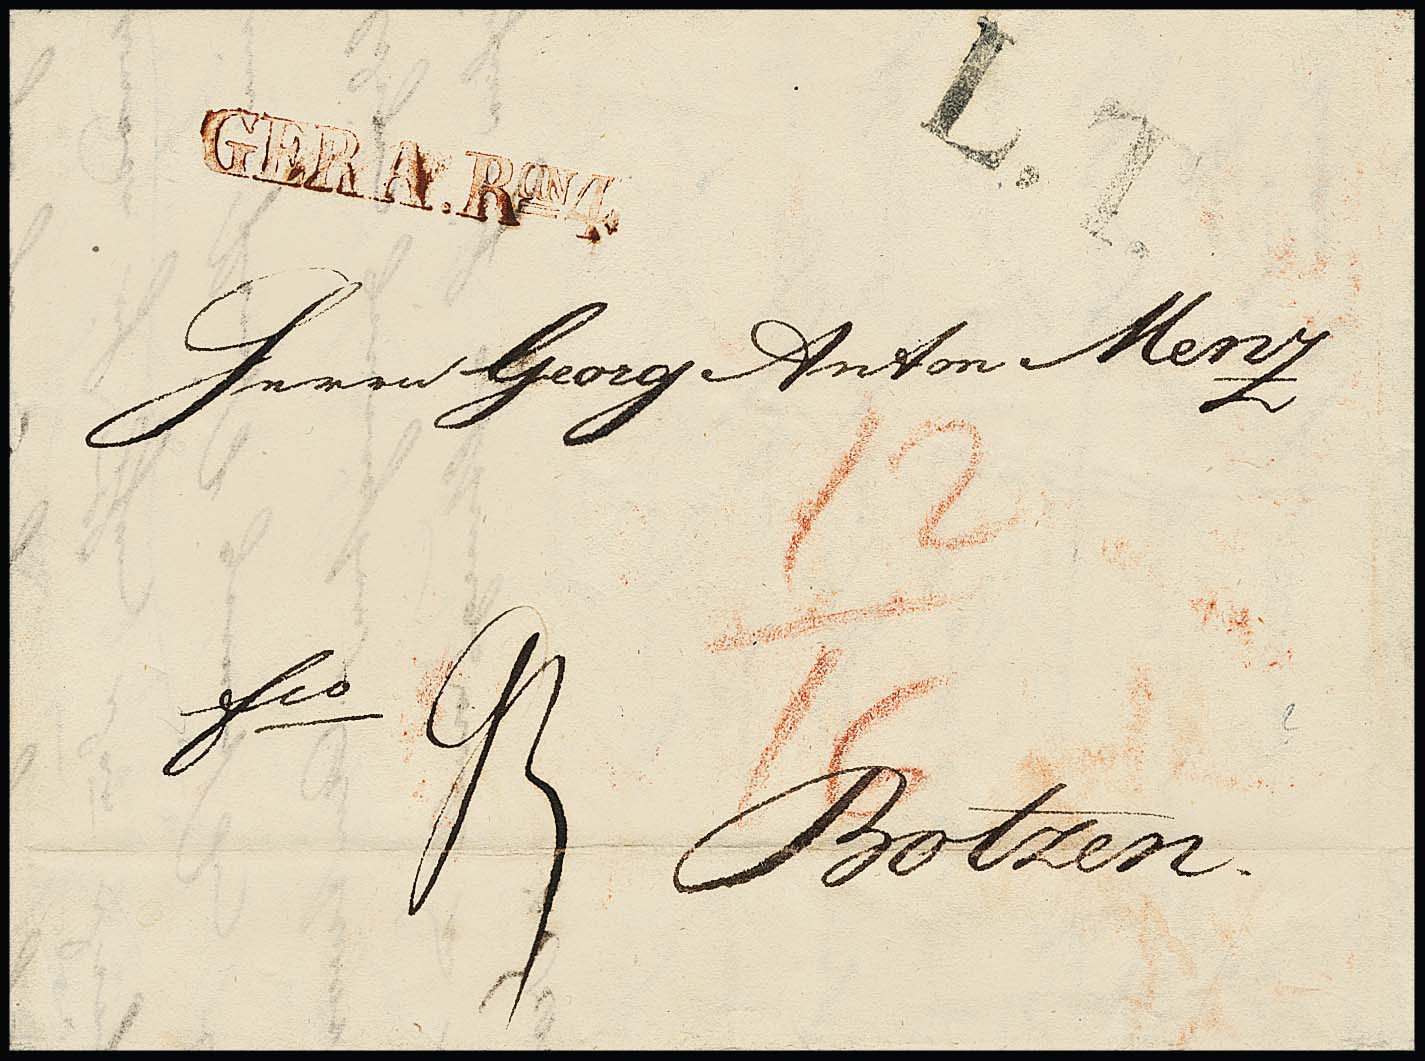 L. T.
GERA. R⁽ᴼᴺ⁾4.
Herrn Georg Anton Menz
12
16
fco
Botzen.